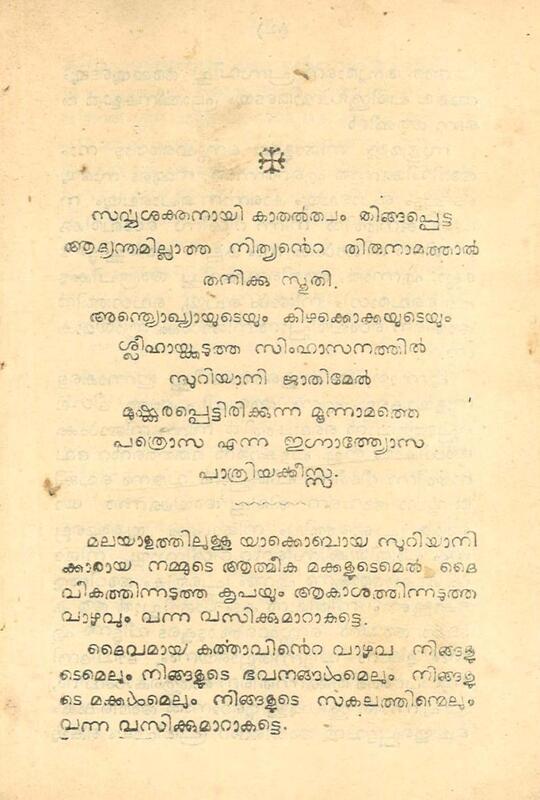 സൎവ്വശക്തനായി കാതൽത്വം തിങ്ങപ്പെട്ട
ആദ്യന്തമില്ലാത്ത നിത്യൻെറ തിരുനാമത്താൽ
തനിക്കു സ്തുതി.
അന്ത്യൊഖ്യായുടെയും കിഴക്കൊക്കയുടെയും
ശ്ലീഹായ്ക്കടുത്ത സിംഹാസനത്തിൽ
സുറിയാനി ജാതിമേൽ
മുഷ്കരപ്പെട്ടിരിക്കുന്ന മൂന്നാമത്തെ
പത്രൊസ എന്ന ഇഗ്നാത്യോസ
പാത്രിയക്കീസ്സ.
മലയാളത്തിലുള്ള യാക്കൊബായ സുറിയാനി
ക്കാരായ നമ്മുടെ ആത്മീക മക്കളുടെമെൽ ദൈ
വീകത്തിന്നടുത്ത കൃപയും ആകാശത്തിന്നടുത്ത
വാഴ്വും വന്ന വസിക്കുമാറാകട്ടെ.
ദൈവമായ കൎത്താവിൻെറ വാഴ്വ നിങ്ങളു
ടെമെലും നിങ്ങളുടെ ഭവനങ്ങൾമെലും നിങ്ങളു
ടെ മക്കൾമെലും നിങ്ങളുടെ സകലത്തിന്മെലും
വന്ന വസിക്കുമാറാകട്ടെ.